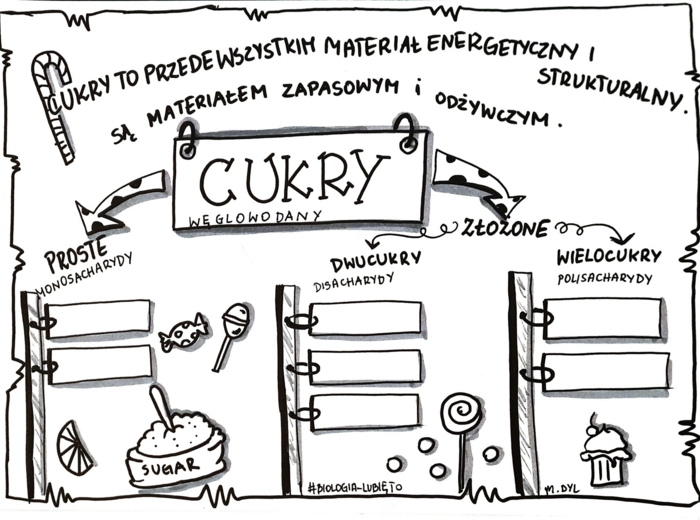 CUKRY TO PRZEDEWSZYSTKIM MATERIAŁ ENERGETYCZNY I
STRUKTURALNY.
SĄ MATERIAŁEM ZAPASOWYM i ODŻYWCZYM.
CUKRY
WĘGLOWODANY
ZŁOŻONE
PROSTE
MONOSACHARYDY
DWUCUKRY
DISACHARYDY
WIELOCUKRY
POLISACHARYDY
SUGAR
#BIOLOGIA-LUBIĘTO
M. DYL